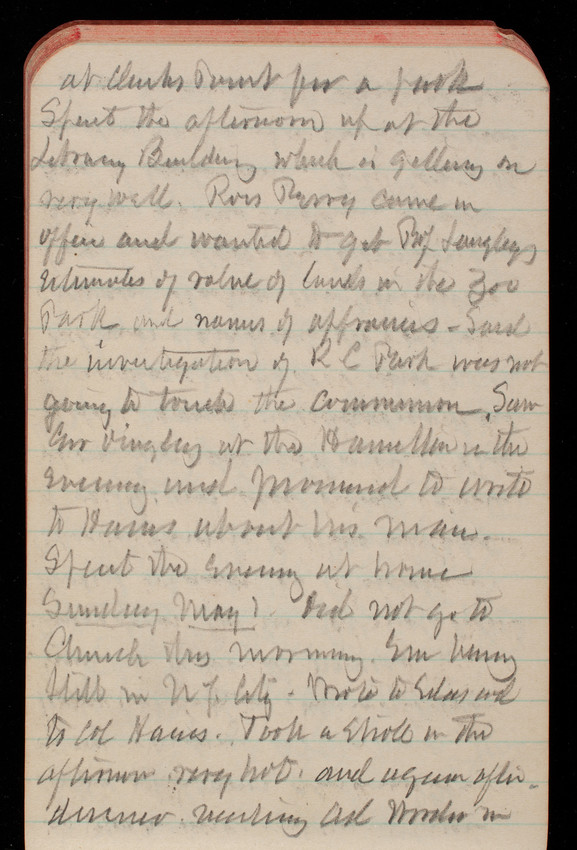 at Clarks Point for a park
Spent the afternoon up at the
Library Building which is getting on
very well. Ross Perry came in
office and wanted to get Prof Langleys
estimates of value of lands in the Zoo
Park and names of appraisers - Said
the investigation of R C Park was not
going to touch the commission. Saw
Gov Dingley at the Hamilton in the
Evening and promised to write
to Hains about his man.
Spent the Evening at home
Sunday May Did not go to
Church this morning. Em being
still in N.Y. City. Wrote to and
to Col Hains. Took a stroll in the
afternoon very hot. and again after
dinner. meeting in